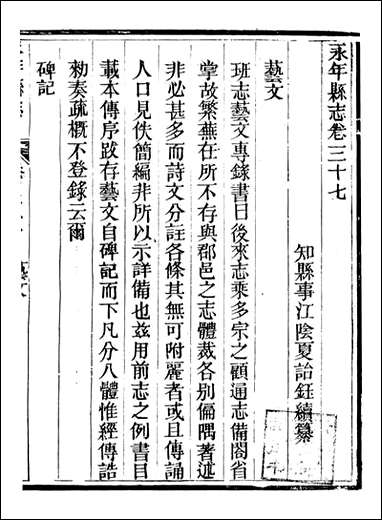 永年縣志卷三十七
知縣事江陰夏詒鈺續纂
藝文
班志藝文專錄書目後來志乘多宗之顧通志備閣省
掌故繁蕪在所不存與郡邑之志體裁各別偏隅著述
非必甚多而詩文分註各條其無可附麗者或且傳誦
人口見佚簡編非所以示詳備也兹用前志之例書目
載本傳序跋存藝文自碑記而下凡分八體惟經傳誥
勑奏疏概不登錄云爾
碑記